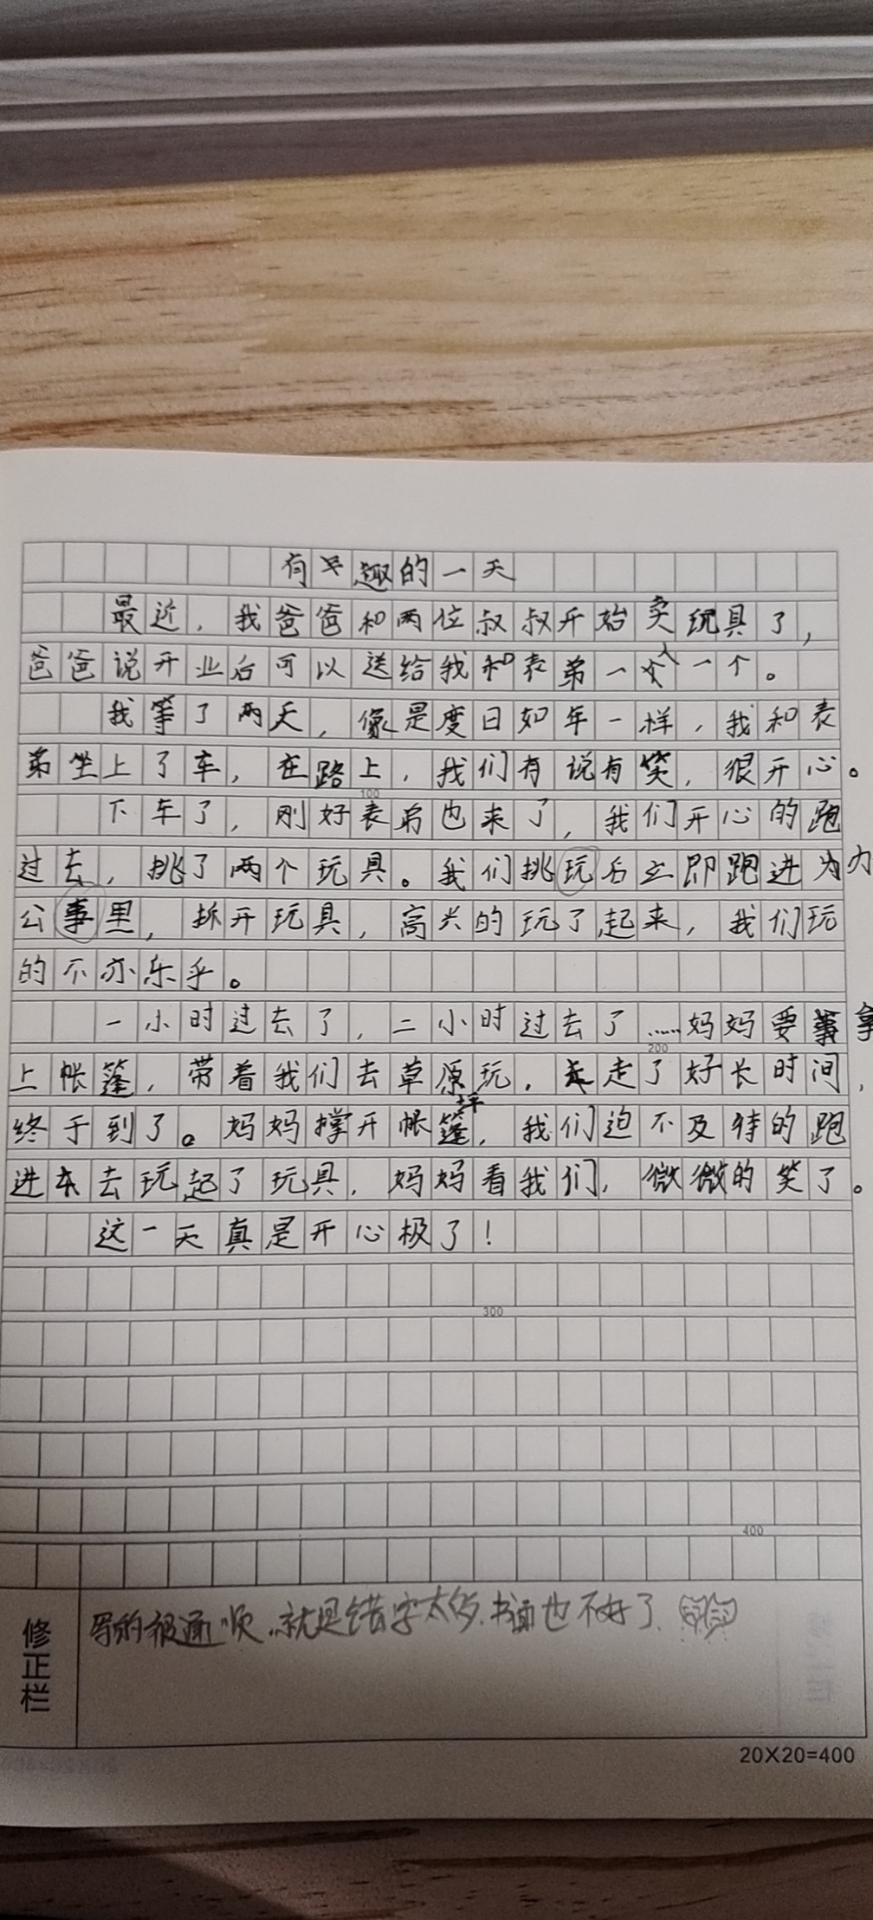 有兴趣的一天
最近，我爸爸和两位叔叔开始卖玩具了，
爸爸说开业后可以送给我和表弟一人一个。
我等了两天，像是度日如年一样，我和表
弟坐上了车，在路上，我们有说有笑，很开心。
下车了，刚好表弟也来了，我们开心的跑
过去，挑了两个玩具。我们挑玩后立即跑进为办
公事里，拆开玩具，高兴的玩了起来，我们玩
的不亦乐乎。
一小时过去了，二小时过去了……妈妈要拿
上帐篷，带着我们去草原玩，走了好长时间，
坪
终于到了。妈妈撑开帐篷，我们迫不及待的跑
进去玩起了玩具，妈妈看我们，微微的笑了。
这一天真是开心极了！
100
200
300
400
修正栏
写的很通顺，就是错字太多，书面也不好了
20X20=400